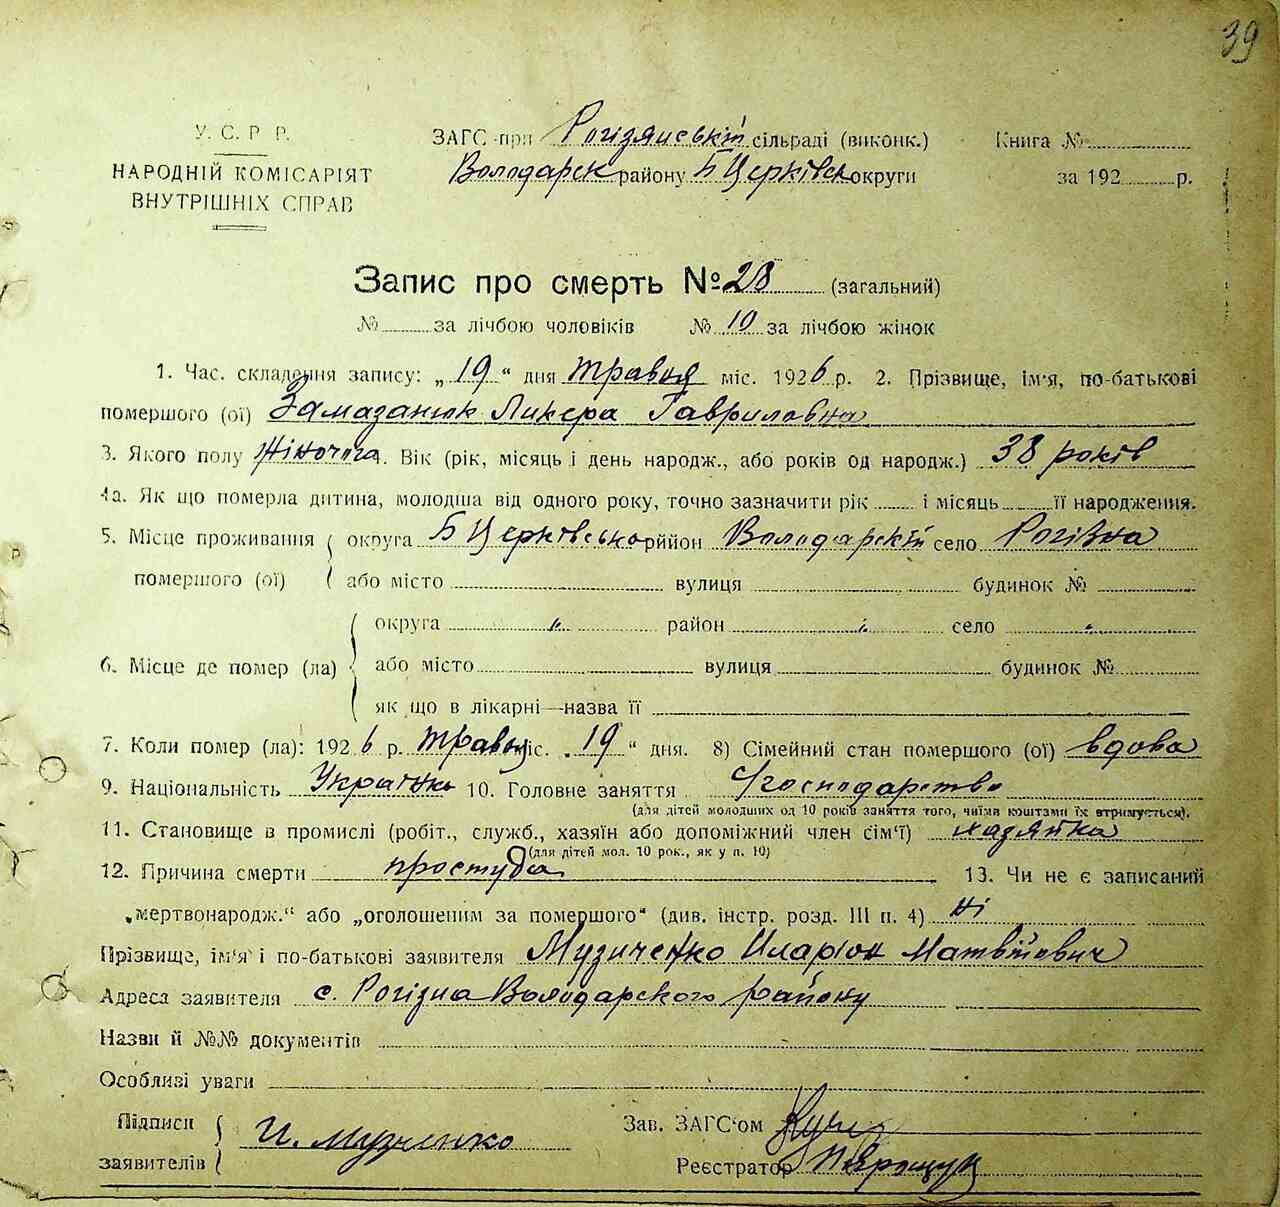 39
У. С. Р. Р.
НАРОДНІЙ КОМІСАРІЯТ
ВНУТРІШНІХ СПРАВ
ЗАГС при Рогізянській сільраді (виконк.)
Володарск району Б Церківск округи
Книга №
за 192 р.
Запис про смерть № 28 (загальний)
№ за лічбою чоловіків № 10 за лічбою жінок
1. Час складення запису: „19“ дня травня міс. 1926 р. 2. Прізвище, ім'я, по-батькові
помершого (ої) Замазанюк Ликера Гавриловна
3. Якого полу жіночого. Вік (рік, місяць і день народж., або років од народж.) 38 років
4а. Як що померла дитина, молодша від одного року, точно зазначити рік і місяць її народження.
5. Місце проживання округа Б Церківсько район Володарскій село Рогізна
помершого (ої) або місто вулиця будинок №
округа " район " село "
6. Місце де помер (ла) або місто вулиця будинок №
як що в лікарні—назва її
7. Коли помер (ла): 1926 р. травня міс. „19“ дня. 8) Сімейний стан помершого (ої) вдова
9. Національність Українка 10. Головне заняття С/господарство
(для дітей молодших од 10 років заняття того, чиїми коштами їх втримується).
11. Становище в промислі (робіт., служб., хазяїн або допоміжний член сім'ї) хазяйка
(для дітей мол. 10 рок., як у п. 10)
12. Причина смерти простуда 13. Чи не є записаний
„мертвонародж.“ або „оголошеним за помершого“ (див. інстр. розд. III п. 4) ні
Прізвище, ім'я і по-батькові заявителя Музиченко Иларіон Матвійович
Адреса заявителя с. Рогізна Володарского району
Назви й №№ документів
Особливі уваги
Підписи заявителів И. Музиченко
Зав. ЗАГС'ом
Реєстратор